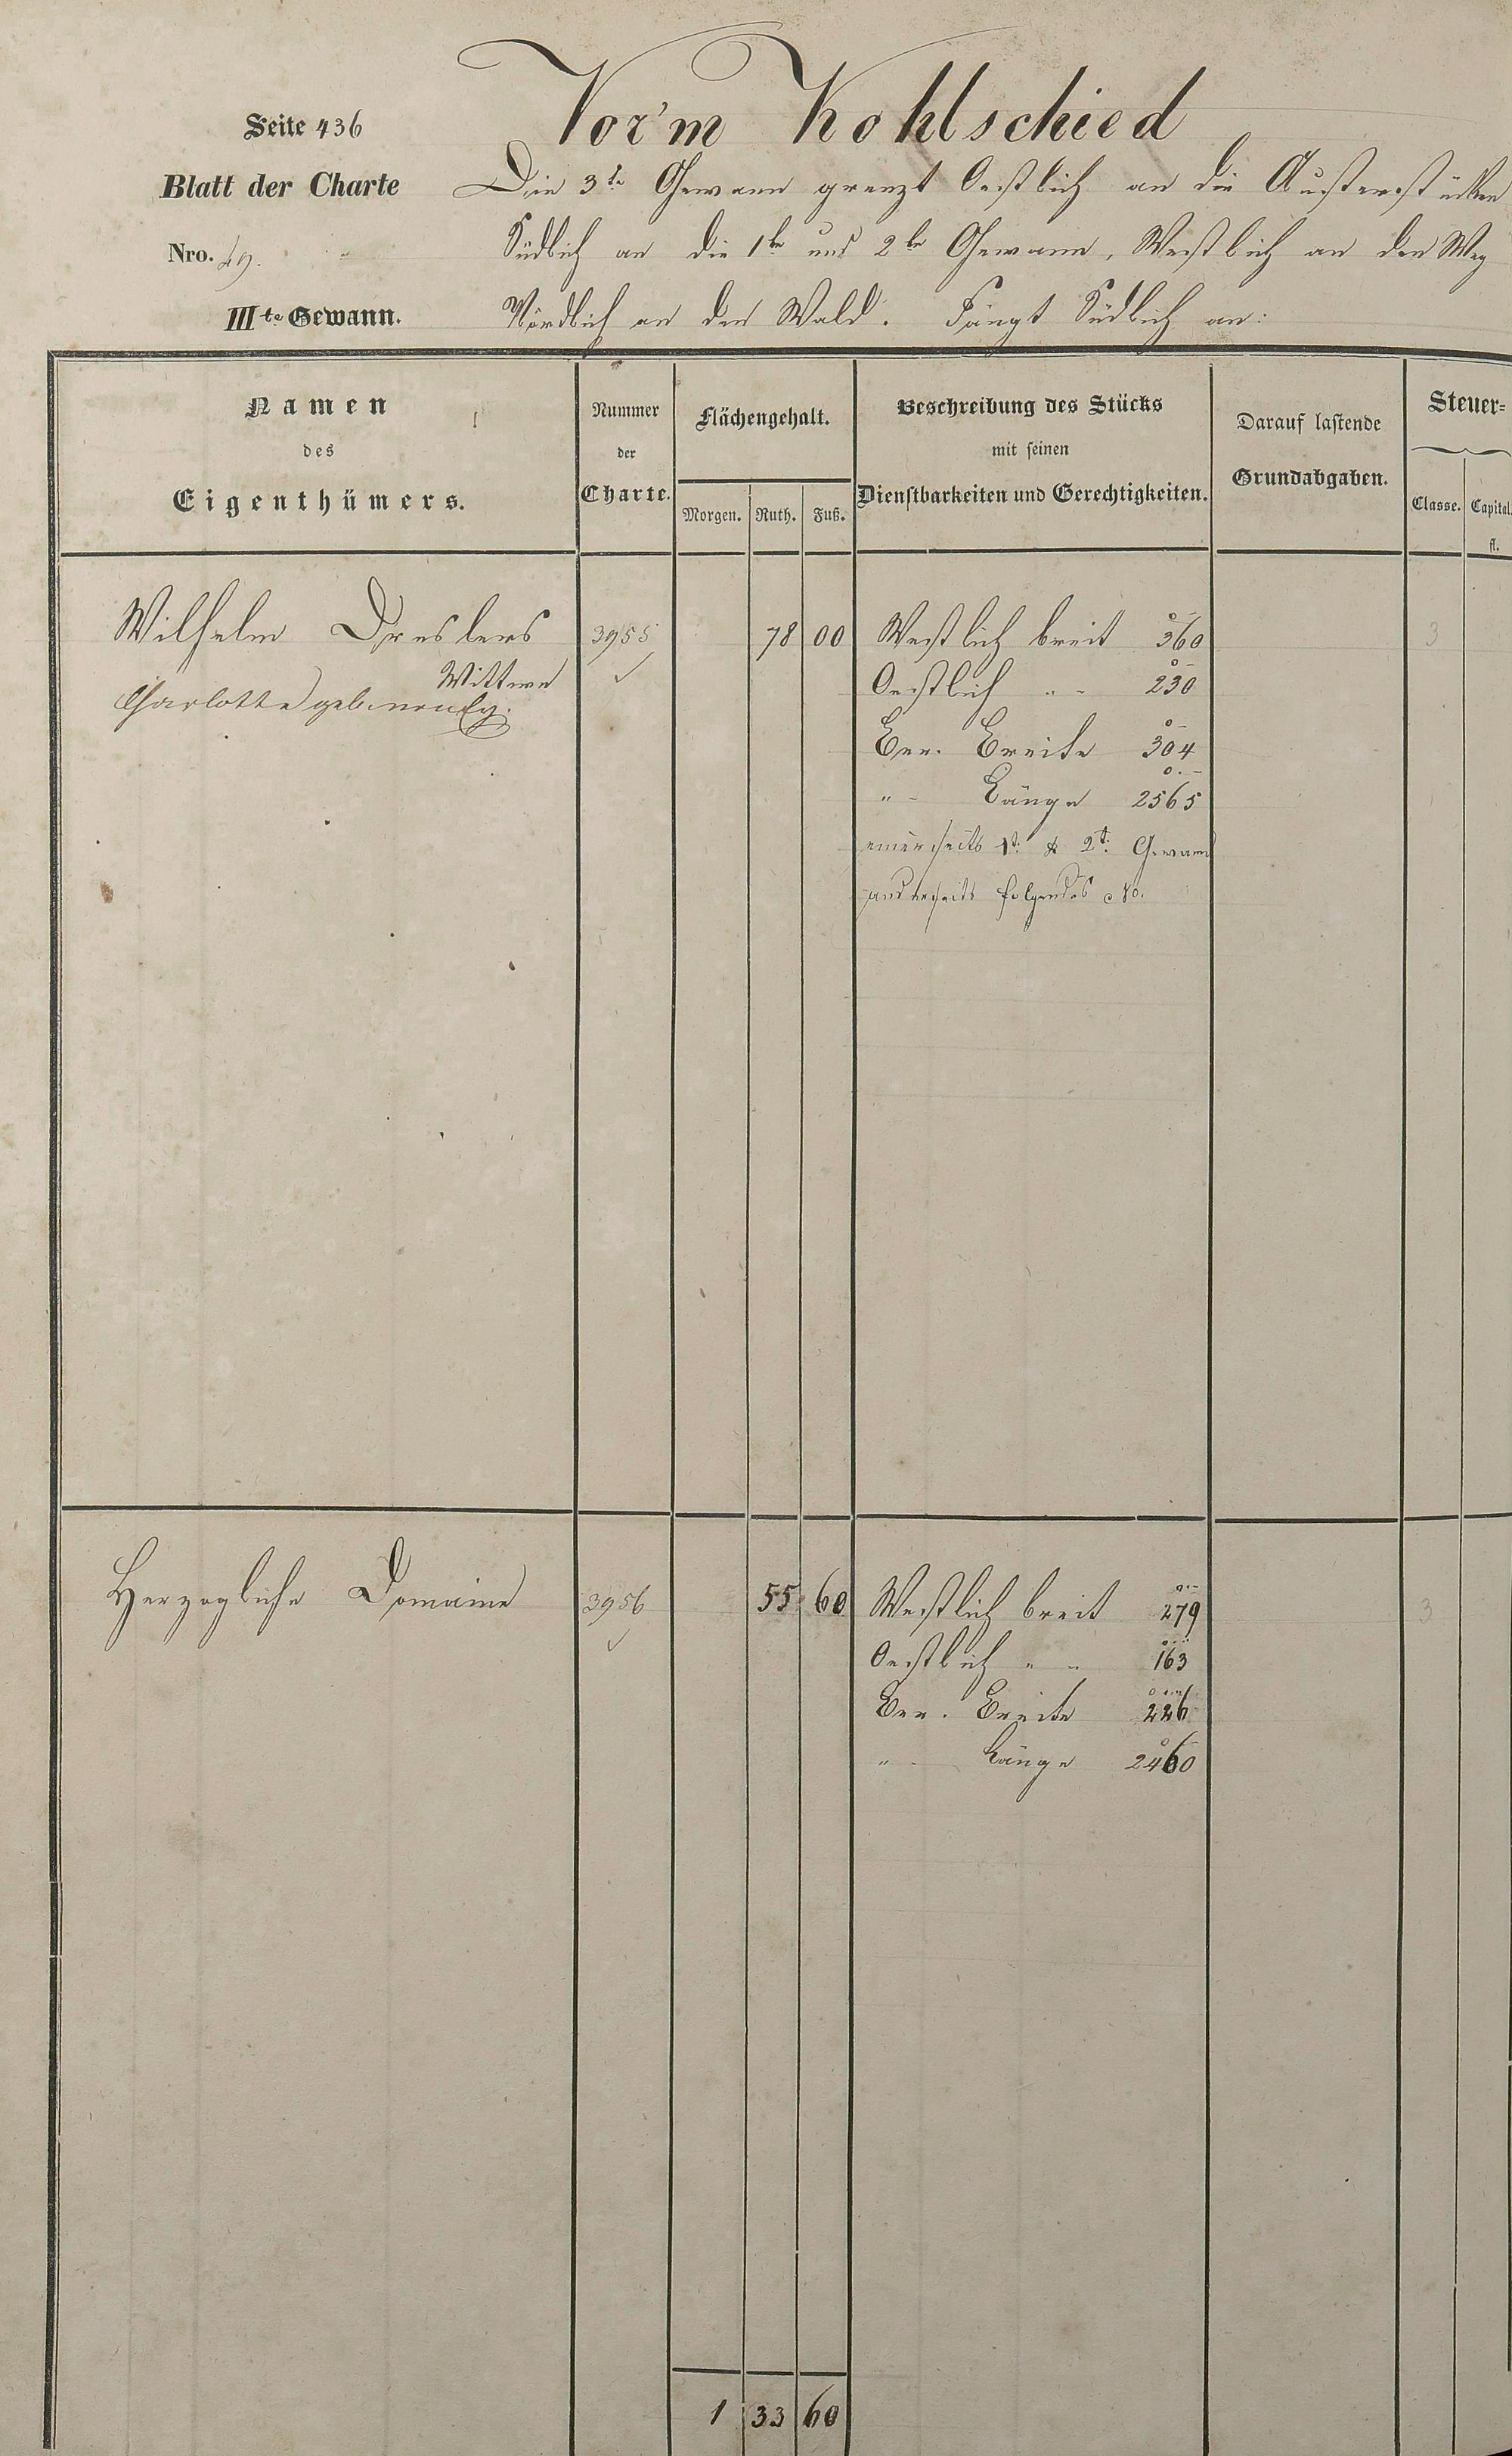 Vor'm Kohlschied
Seite 436
Blatt der Charte
Nro. 49.
IIIte Gewann.
Die 3te Gewann grenzt Oestlich an die
Südlich an die 1te und 2te Gewann, Westlich an den Weg
Nördlich an den Wald. Fängt Südlich an:
Namen
des
Eigenthümers.
Nummer
der
Charte.
Flächengehalt.
Morgen. Ruth. Fuß.
Beschreibung des Stücks
mit seinen
Dienstbarkeiten und Gerechtigkeiten.
Darauf lastende
Grundabgaben.
Steuer=
Classe. Capital.
fl.
Wilhelm Dreslers 3955 78 00 Westlich breit 360 3
Wittwe
Charlotte geb.
Oestlich " - 230
Ber. Breite 304
" - Länge 2565
einerseits 1t. & 2t. Gewann
anderseits folgendes No.
Herzogliche Domaine 3956 55 60 Westlich breit 279 3
Oestlich " - 163
Ber. Breite 226
" - Länge 2460
1 33 60